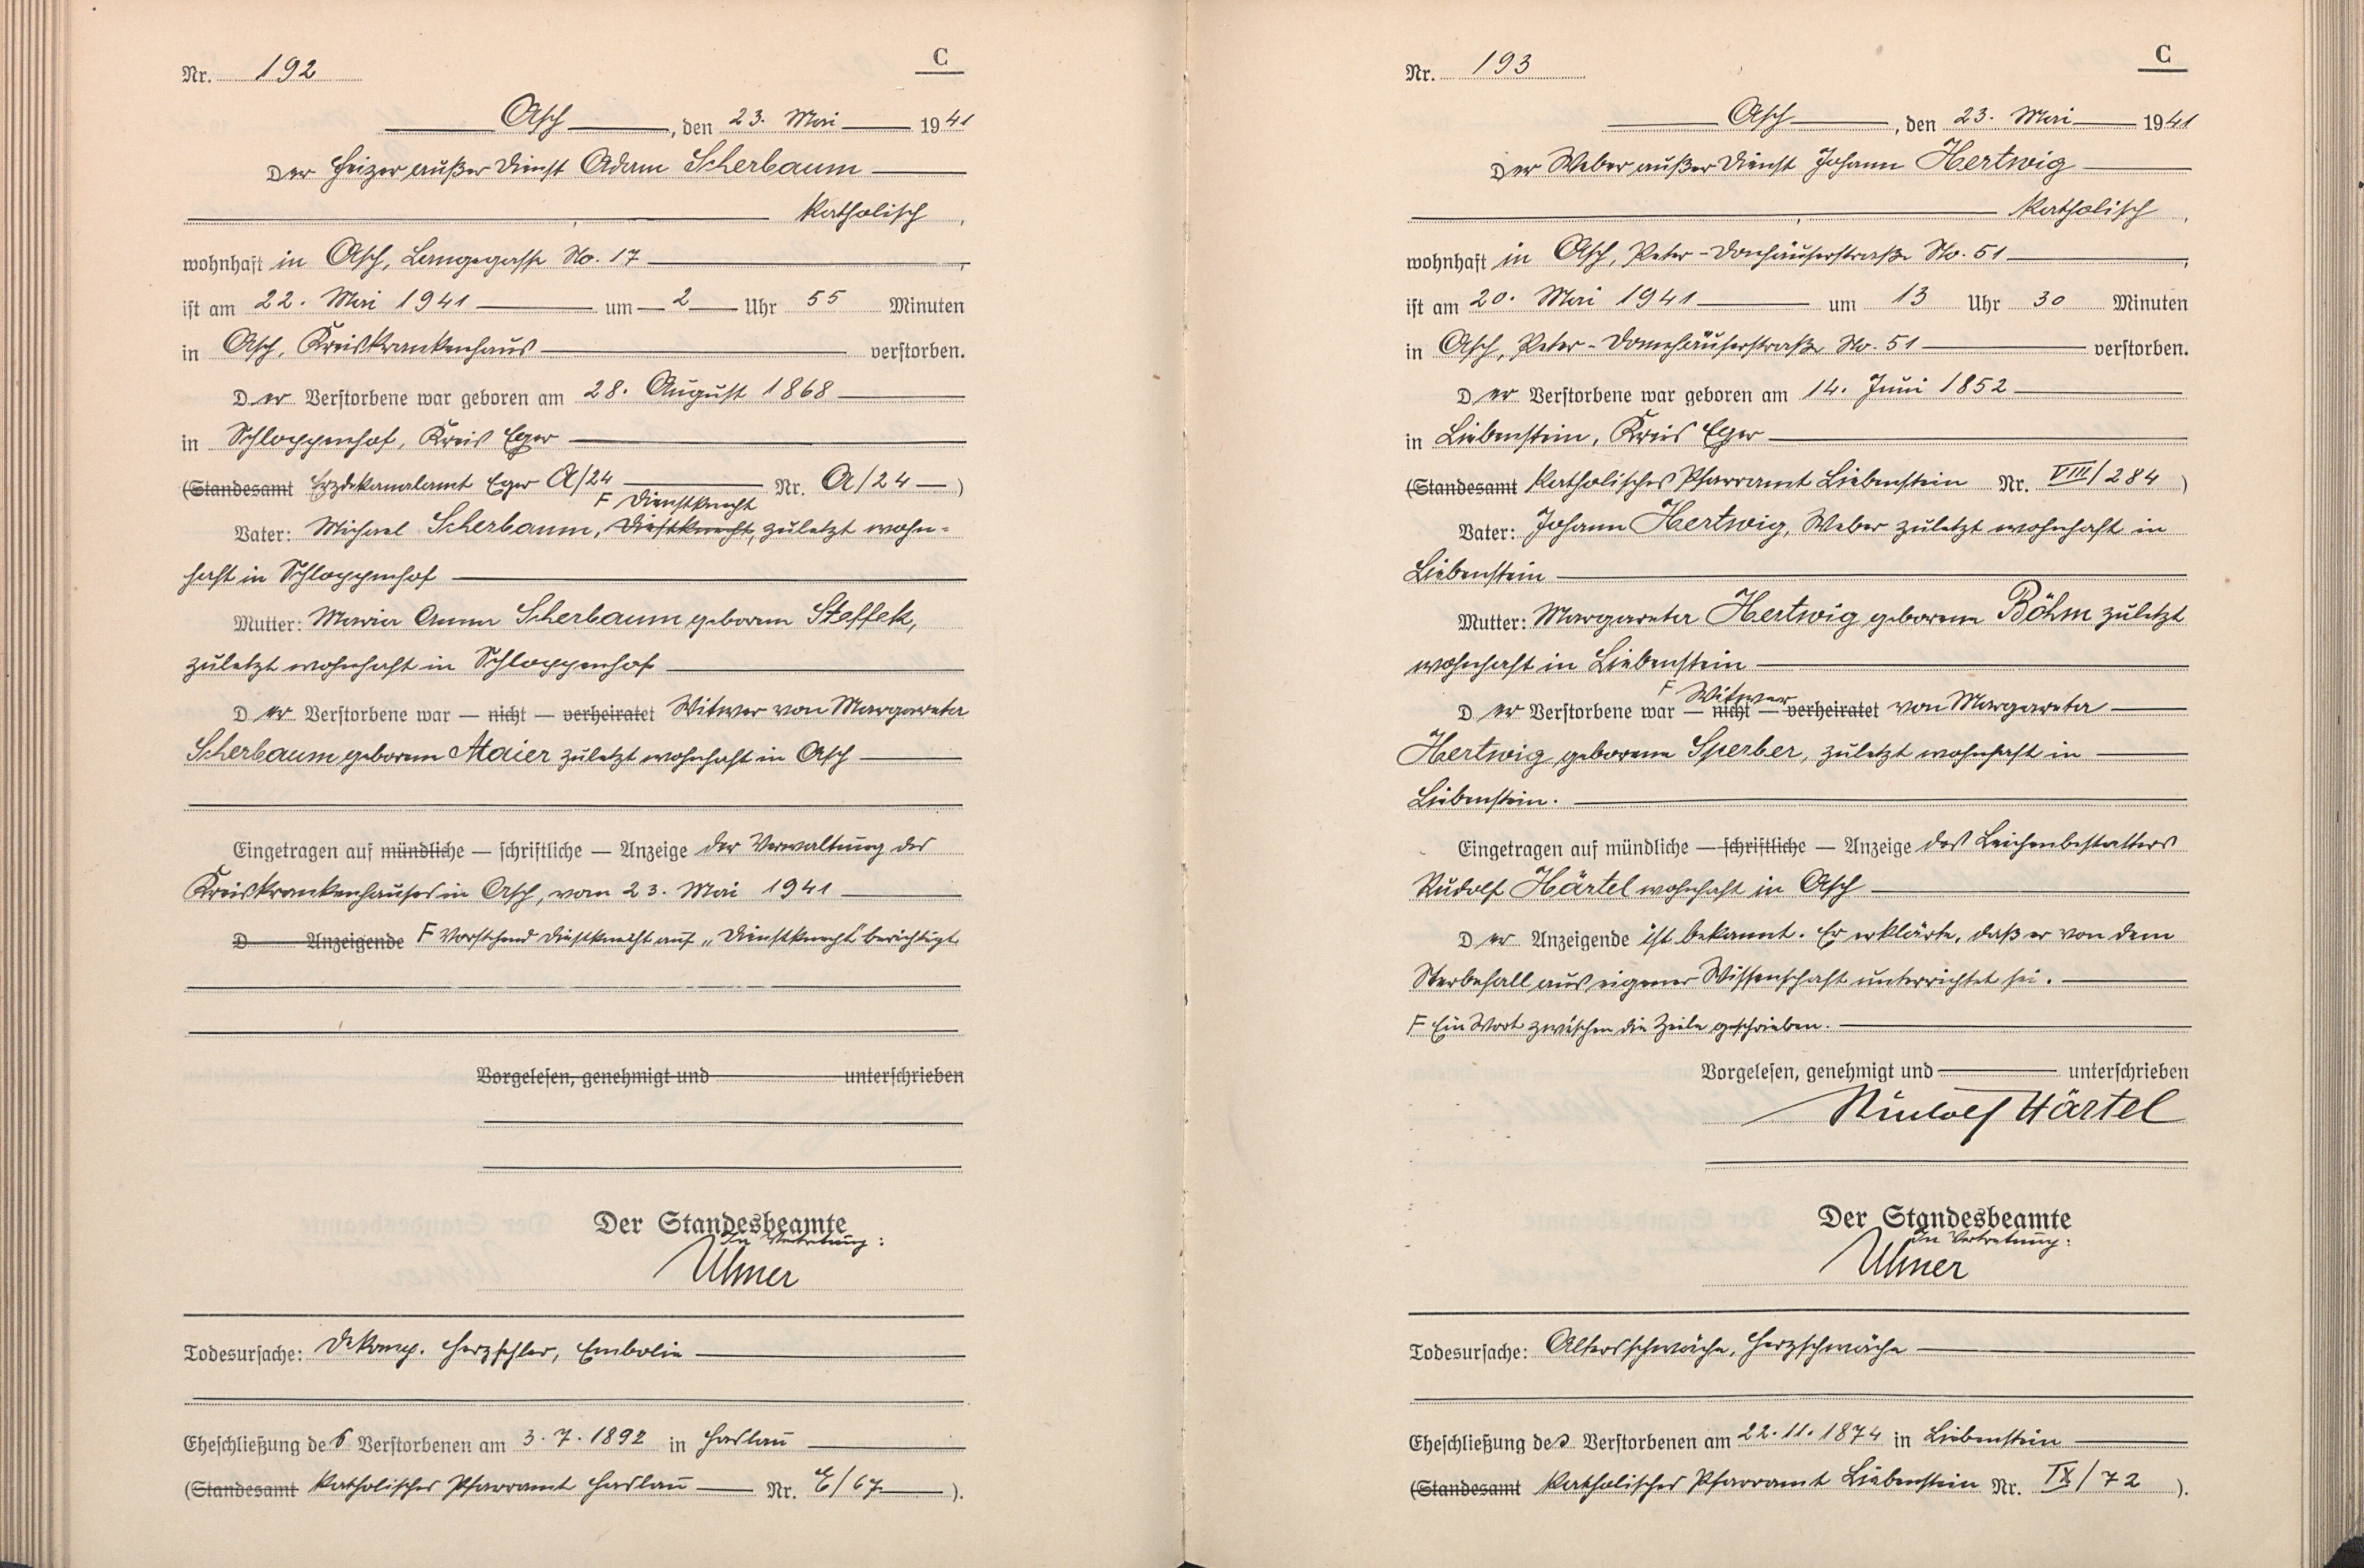 C
Nr. 192
Asch, den 23. Mai 1941
Der Heizer außer Dienst Adam Scherbaum
katholisch,
wohnhaft in Asch, Langegasse No. 17,
ist am 22. Mai 1941 um 2 Uhr 55 Minuten
in Asch, Kreiskrankenhaus verstorben.
Der Verstorbene war geboren am 28. August 1868
in Schloppenhof, Kreis Eger
(Standesamt Erzdekanalamt Eger A/24 Nr. A/24)
F Dienstknecht
Vater: Michael Scherbaum, Diestknecht, zuletzt wohn-
haft in Schloppenhof
Mutter: Maria Anna Scherbaum geborene Steffek,
zuletzt wohnhaft in Schloppenhof
Der Verstorbene war — nicht — verheiratet Witwer von Margareta
Scherbaum geborene Maier zuletzt wohnhaft in Asch
Eingetragen auf mündliche — schriftliche — Anzeige der Verwaltung des
Kreiskrankenhauses in Asch, vom 23. Mai 1941
D Anzeigende F Vorstehend Diestknecht auf „Dienstknecht" berichtigt.
Vorgelesen, genehmigt und unterschrieben
Der Standesbeamte
In Vertretung:
Ulmer
Todesursache: Dekomp. Herzfehler, Embolie
Eheschließung des Verstorbenen am 3.7.1892 in Haslau
(Standesamt Katholisches Pfarramt Haslau Nr. E/67).
C
Nr. 193
Asch, den 23. Mai 1941
Der Weber außer Dienst Johann Hertwig
katholisch,
wohnhaft in Asch, Peter-Donhäuserstraße No. 51,
ist am 20. Mai 1941 um 13 Uhr 30 Minuten
in Asch, Peter-Donnhäuserstraße No. 51 verstorben.
Der Verstorbene war geboren am 14. Juni 1852
in Liebenstein, Kreis Eger
(Standesamt Katholisches Pfarramt Liebenstein Nr. VIII/284)
Vater: Johann Hertwig, Weber zuletzt wohnhaft in
Liebenstein
Mutter: Margareta Hertwig geborene Böhm zuletzt
wohnhaft in Liebenstein
F Witwer
Der Verstorbene war — nicht — verheiratet von Margareta
Hertwig geborene Sperber, zuletzt wohnhaft in
Liebenstein.
Eingetragen auf mündliche — schriftliche — Anzeige des Leichenbestatters
Rudolf Härtel wohnhaft in Asch
Der Anzeigende ist bekannt. Er erklärte, daß er von dem
Sterbefall aus eigener Wissenschaft unterrichtet sei.
F Ein Wort zwischen die Zeile geschrieben.
Vorgelesen, genehmigt und unterschrieben
Rudolf Härtel
Der Standesbeamte
In Vertretung:
Ulmer
Todesursache: Altersschwäche, Herzschwäche
Eheschließung des Verstorbenen am 22.11.1874 in Liebenstein
(Standesamt Katholisches Pfarramt Liebenstein Nr. IX/72).